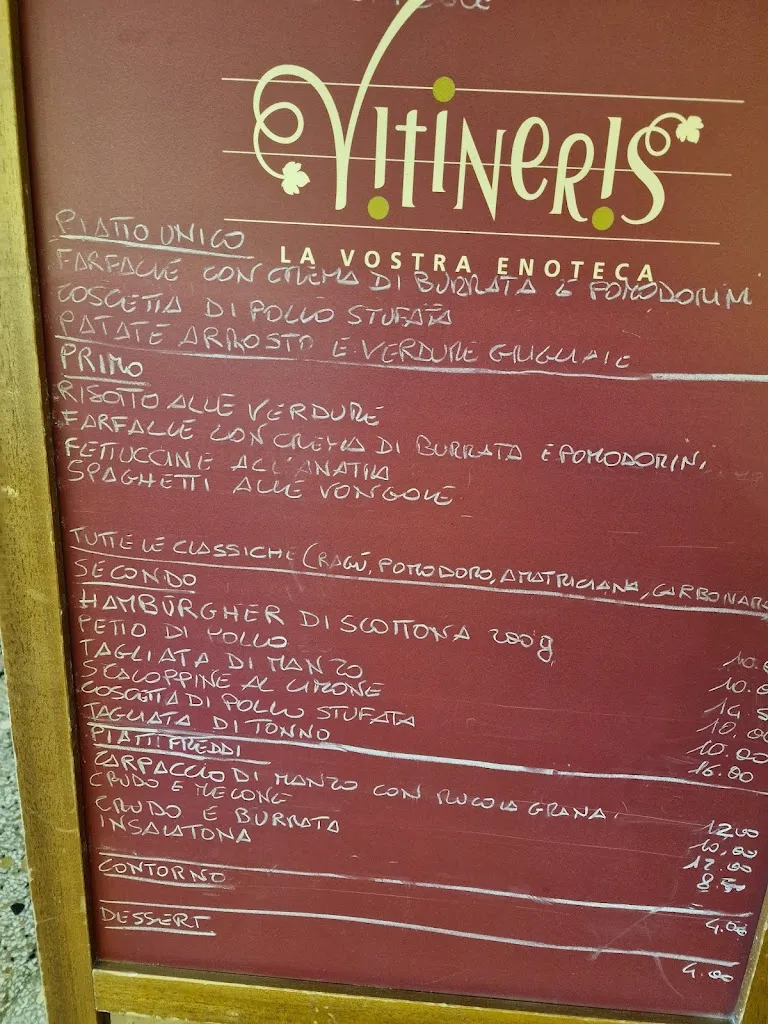 VITINERIS
LA VOSTRA ENOTECA
PIATTO UNICO
FARFALLE CON CREMA DI BURRATA E POMODORINI
COSCETTA DI POLLO STUFATA
PATATE ARROSTO E VERDURE GRIGLIATE
PRIMO
RISOTTO ALLE VERDURE
FARFALLE CON CREMA DI BURRATA E POMODORINI
FETTUCCINE ALL'ANATRA
SPAGHETTI ALLE VONGOLE
TUTTE LE CLASSICHE (RAGÚ, POMODORO, AMATRICIANA, CARBONARA
SECONDO
HAMBURGHER DI SCOTTONA 200g 10.0
PETTO DI POLLO 10.0
TAGLIATA DI MANZO 14.5
SCALOPPINE AL LIMONE 10.00
COSCETTA DI POLLO STUFATA 10.00
TAGLIATA DI TONNO 16.00
PIATTI FREDDI
CARPACCIO DI MANZO CON RUCOLA GRANA. 12,00
CRUDO E MELONE 10,00
CRUDO E BURRATA 12.00
INSALATONA
CONTORNO 4.00
DESSERT 4.00